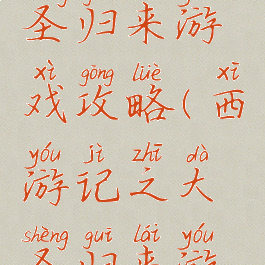 圣归来游
xì gōng lüè xī
戏攻略(西
yóu jì zhī dà
游记之大
shèng guī lái yóu
圣归来游